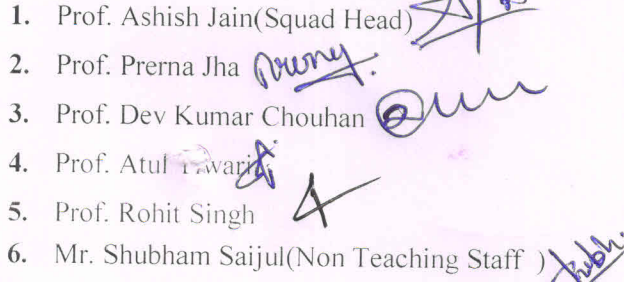 1. Prof. Ashish Jain(Squad Head)
2. Prof. Prerna Jha
3. Prof. Dev Kumar Chouhan
4. Prof. Atul
5. Prof. Rohit Singh
6. Mr. Shubham Saijul(Non Teaching Staff )